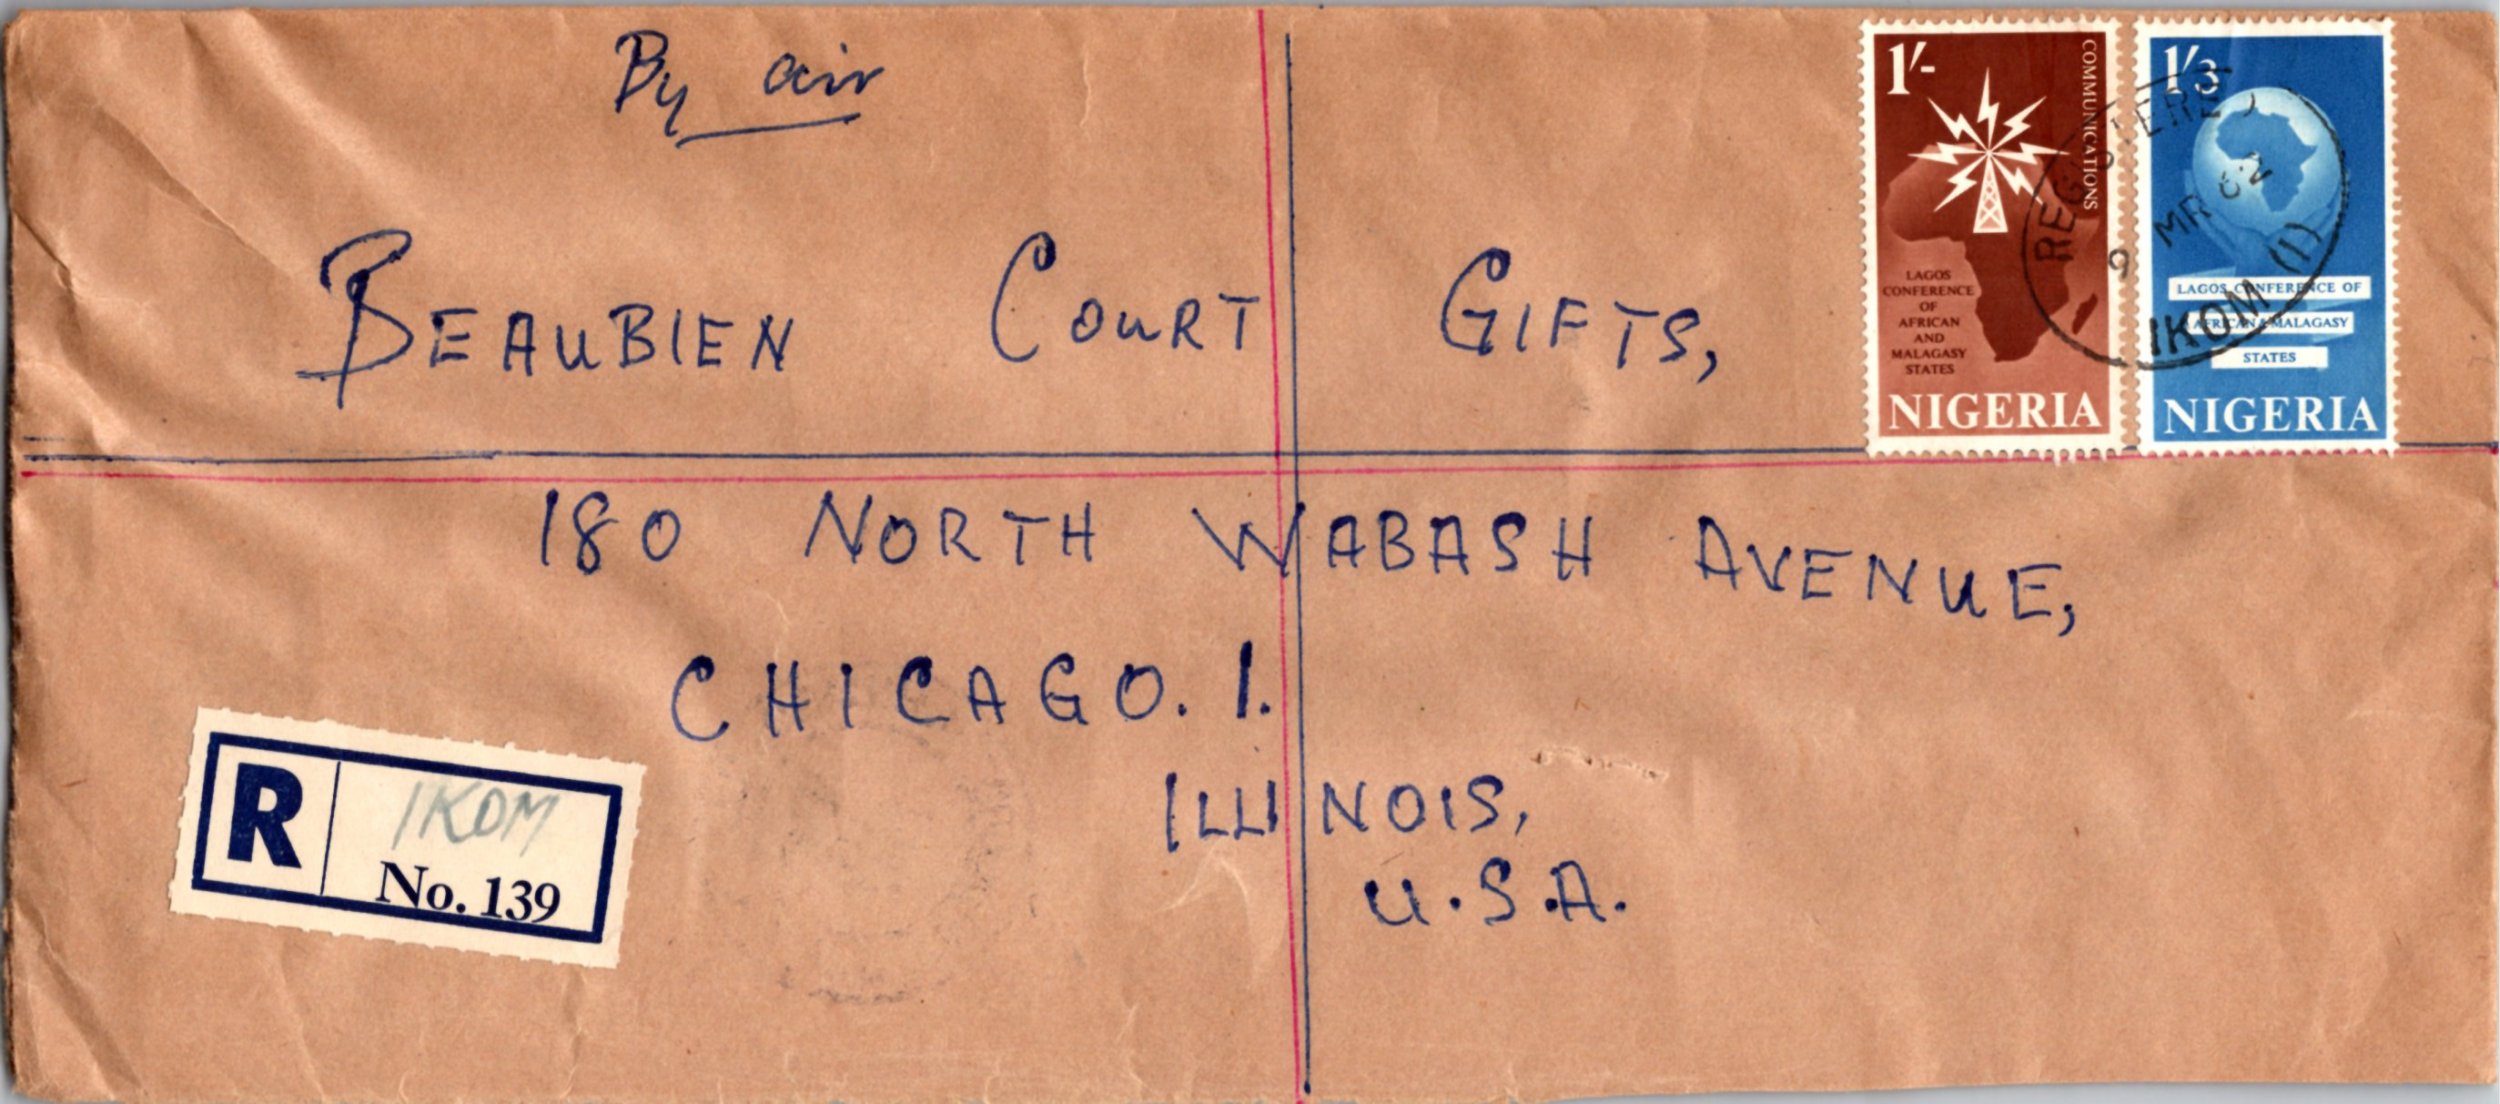 By air
BEAUBIEN COURT GIFTS,
180 NORTH WABASH AVENUE,
CHICAGO. 1.
ILLINOIS,
U.S.A.
R
IKOM
No. 139
1/-
COMMUNICATIONS
LAGOS
CONFERENCE
OF
AFRICAN
AND
MALAGASY
STATES
NIGERIA
1/3
LAGOS CONFERENCE OF
AFRICAN & MALAGASY
STATES
NIGERIA
REGISTERED
9 MR 62
IKOM (1)